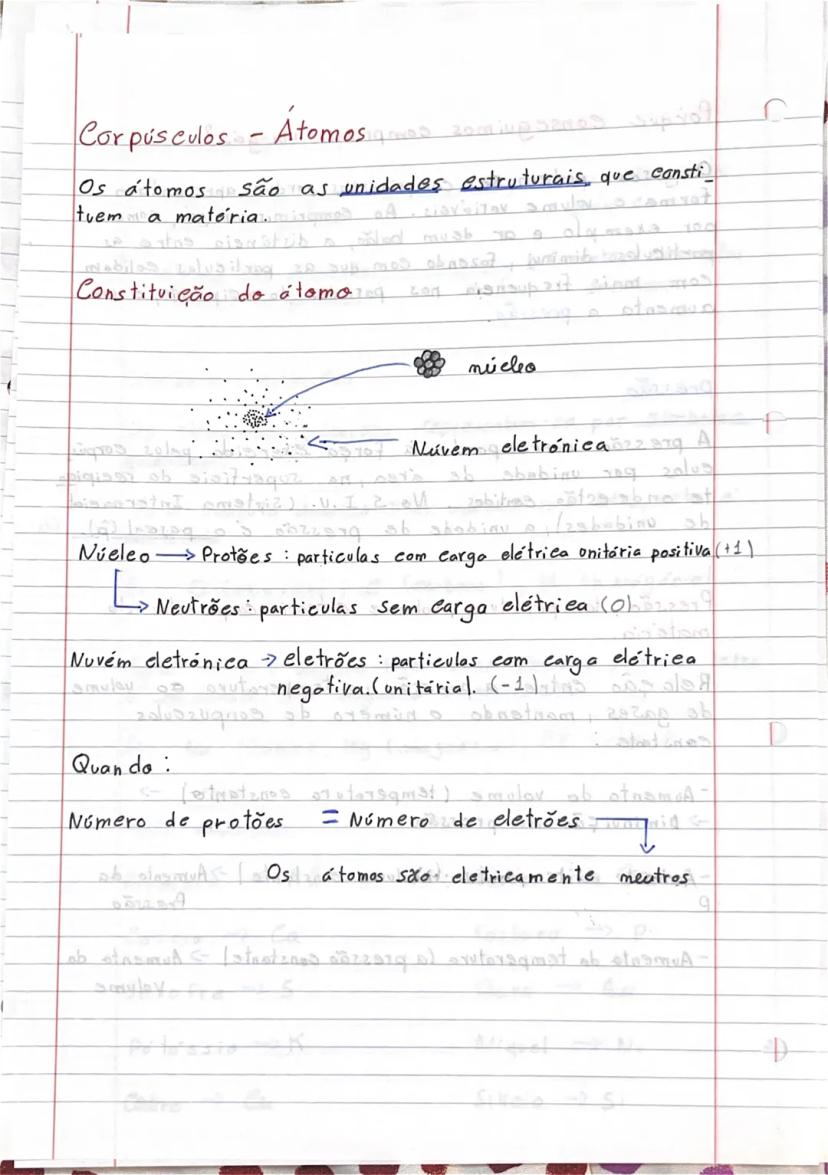 Corpúsculos - Átomos
Os átomos são as unidades estruturais que consti_
tuem a matéria.
Constituição do átomo
núcleo
Núvem eletrónica
Núcleo → Protões : particulas com carga elétrica unitária positiva (+1)
→ Neutrões : particulas sem carga elétrica (0)
Nuvém eletrónica → eletrões : particulas com carga elétrica
negativa. (unitária). (-1)
Quando :
Número de protões = Número de eletrões
Os átomos são eletricamente neutros